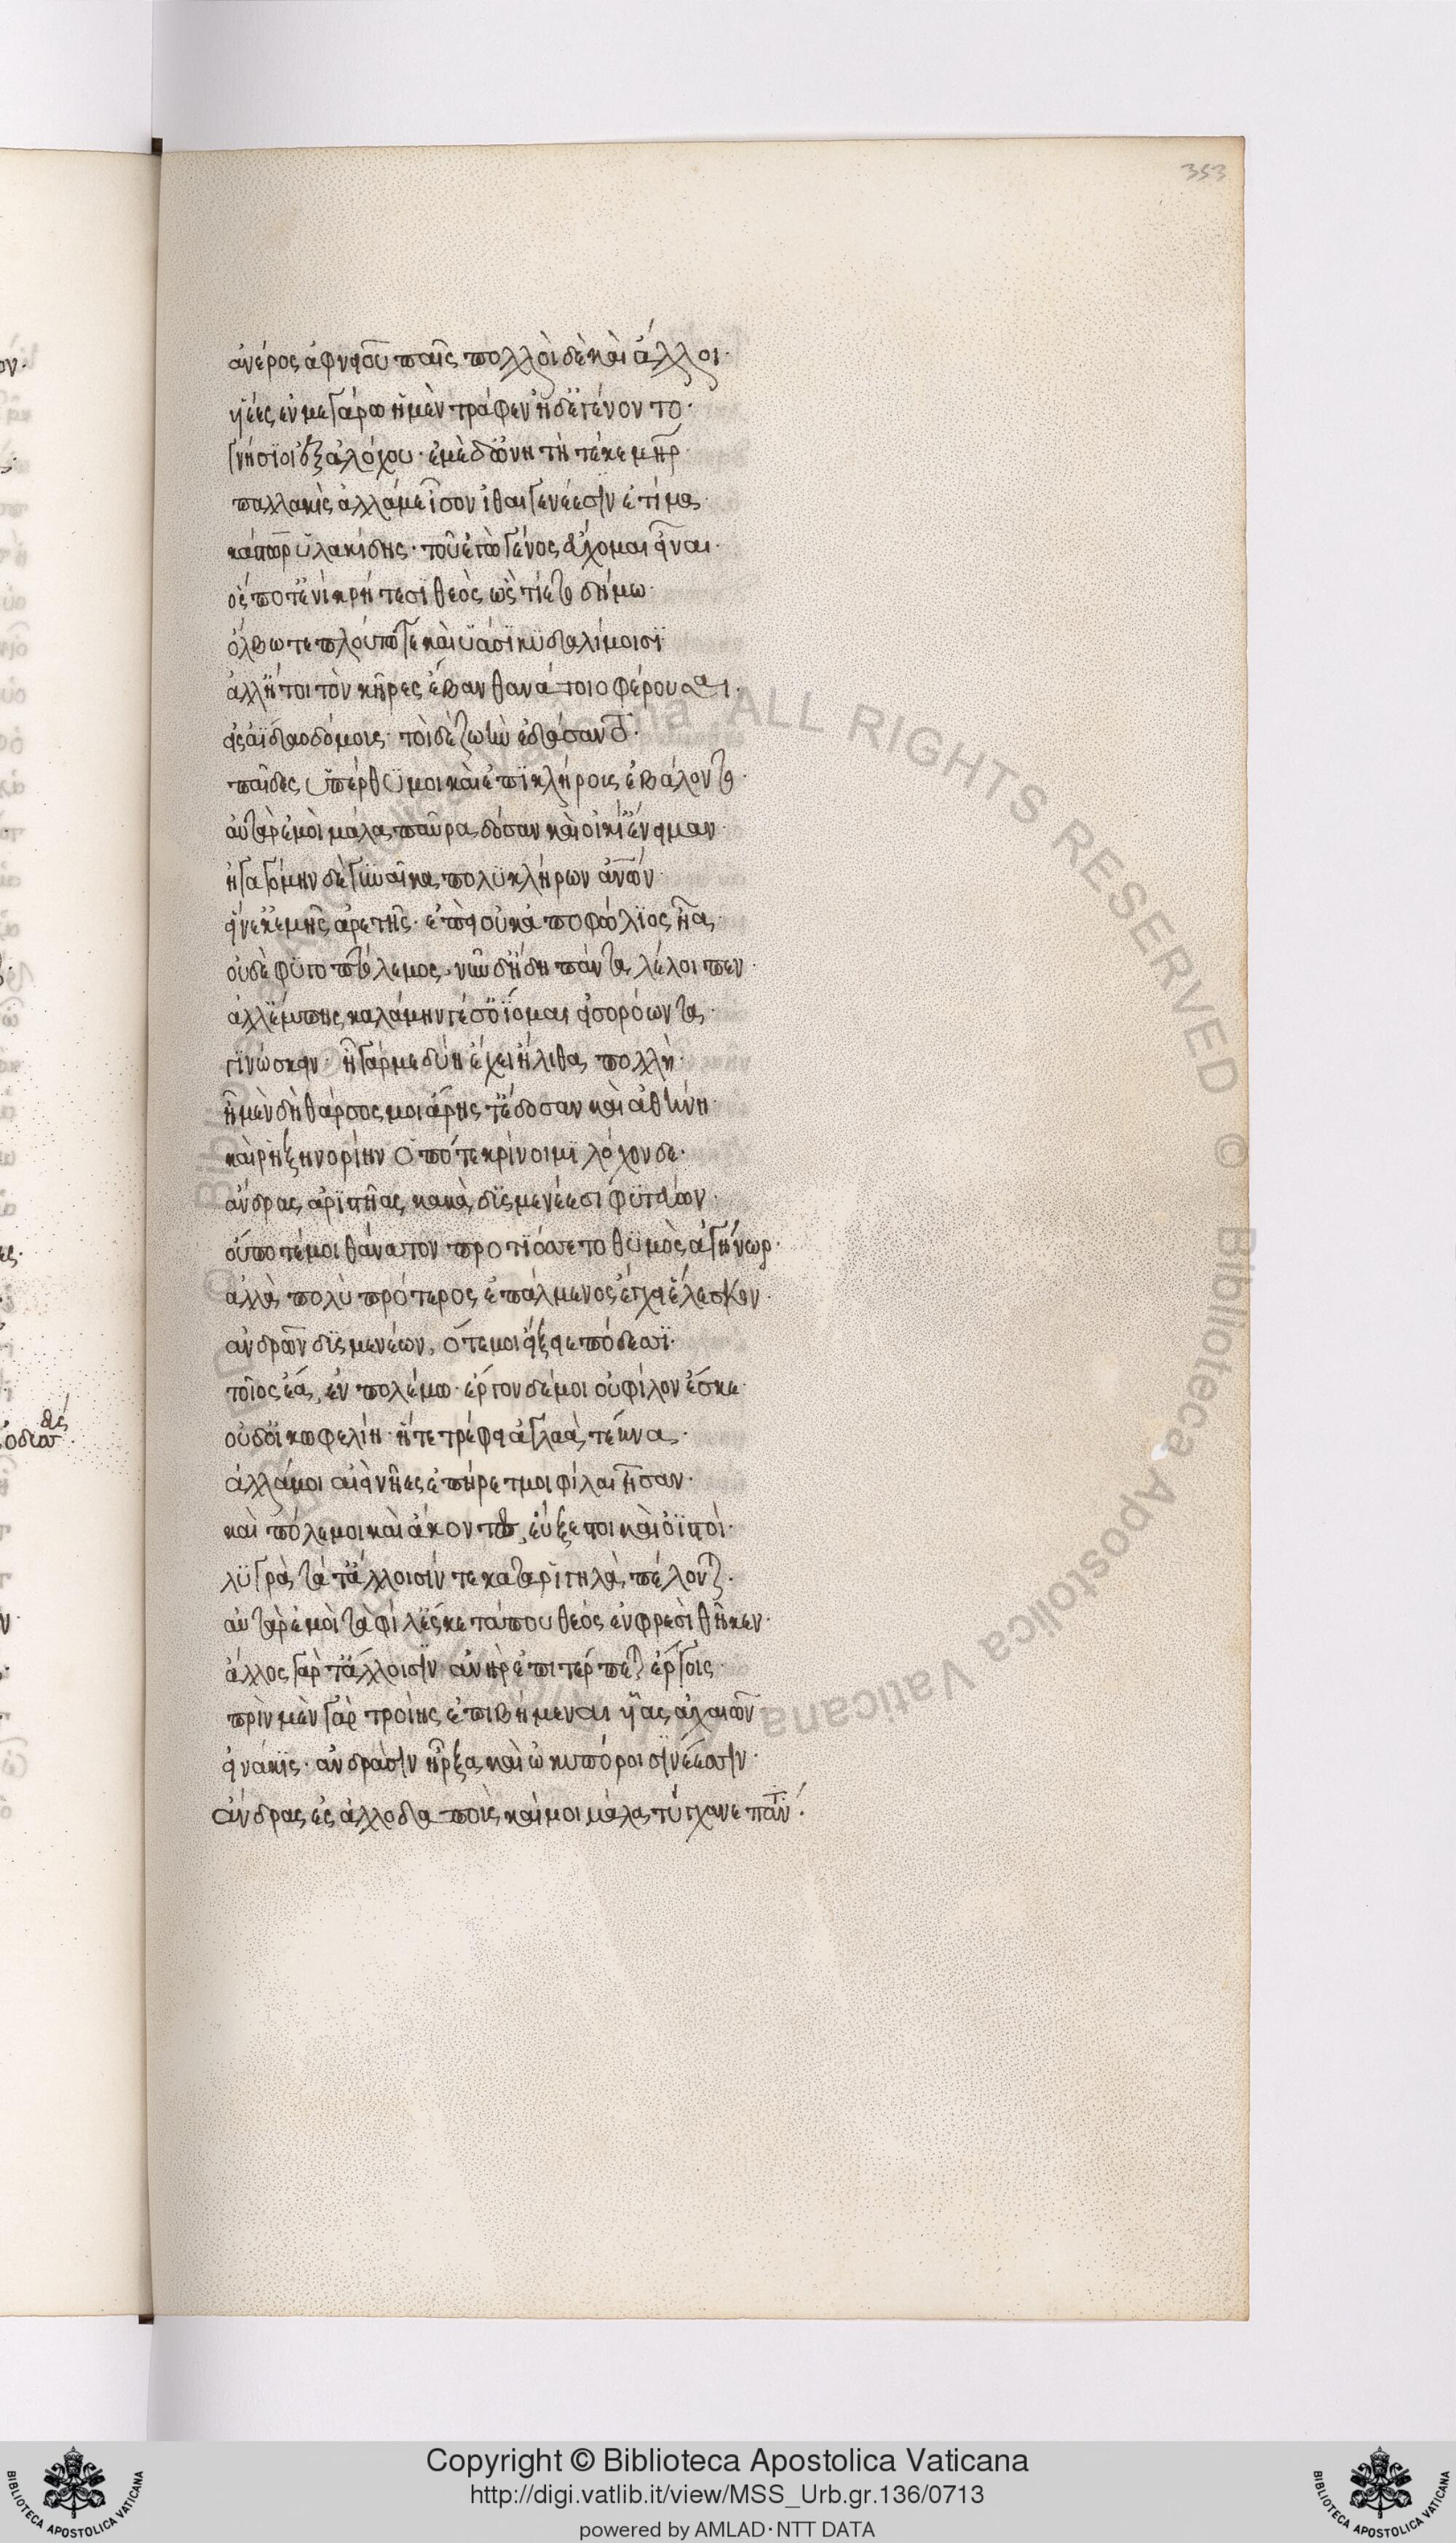 353
ἀνέρος ἀφνειοῦ παῖς πολλοὶ δὲ καὶ ἄλλοι·
υἱέες ἐν μεγάρω ἠμὲν τράφεν ἠδ' ἐγένοντο·
γνήσιοι ἐξ ἀλόχου· ἐμὲ δ' ὠνητὴ τέκε μήτηρ
παλλακὶς ἀλλά με ἶσον ἰθαιγενέεσσιν ἐτίμα
κάστωρ ὑλακίδης· τοῦ ἐγὼ γένος εὔχομαι εἶναι·
ὅς ποτ' ἐνὶ κρήτεσι θεὸς ὣς τίετο δήμω·
ὄλβω τε πλούτω τε καὶ υἱάσι κυδαλίμοισι
ἀλλ' ἤτοι τὸν κῆρες ἔβαν θανάτοιο φέρουσαι·
εἰς ἀΐδαο δόμοις· τοὶ δὲ ζωὴν ἐδάσαντο·
παῖδες ὑπέρθυμοι καὶ ἐπὶ κλήροις ἐβάλοντο·
αὐτὰρ ἐμοὶ μάλα παῦρα δόσαν καὶ οἰκί' ἔνειμαν·
ἠγαγόμην δὲ γυναῖκα πολυκλήρων ἀνθρώπων·
εἵνεκ' ἐμῆς ἀρετῆς· ἐπεὶ οὐκ ἀποφώλιος ἦα
οὐδὲ φυγοπτόλεμος· νῦν δ' ἤδη πάντα λέλοιπεν·
ἀλλ' ἔμπης καλάμην γέ σ' ὀΐομαι εἰσορόωντα·
γινώσκειν· ἦ γάρ με δύη ἔχει ἤλιθα πολλή·
ἦ μὲν δὴ θάρσος μοι ἄρης τ' ἔδοσαν καὶ ἀθήνη·
καὶ ῥηξηνορίην ὁπότε κρίνοιμι λόχονδε·
ἄνδρας ἀριστῆας κακὰ δυσμενέεσι φυτεύων·
οὔποτέ μοι θάνατον προτιόσσετο θυμὸς ἀγήνωρ·
ἀλλὰ πολὺ πρότερος ἐπάλμενος ἔγχει ἕλεσκον·
ἀνδρῶν δυσμενέων, ὅτε μοι εἴξειε πόδεσσι·
τοῖος ἔα, ἐν πολέμω· ἔργον δέ μοι οὐ φίλον ἔσκε·
οὐδ' οἰκωφελίη· ἥτε τρέφει ἀγλαὰ τέκνα·
ἀλλά μοι αἰεὶ νῆες ἐπήρετμοι φίλαι ἦσαν·
καὶ πόλεμοι καὶ ἄκοντες εὔξεστοι καὶ ὀϊστοί·
λυγρὰ τά τ' ἄλλοισίν τε καταριγηλὰ πέλονται·
αὐτὰρ ἐμοὶ τὰ φίλ' ἔσκε τά που θεὸς ἐν φρεσὶ θῆκεν·
ἄλλος γάρ τ' ἄλλοισιν ἀνὴρ ἐπιτέρπεται ἔργοις·
πρὶν μὲν γὰρ τροίης ἐπιβήμεναι υἷας ἀχαιῶν
εἰνάκις· ἀνδράσιν ἦρξα καὶ ὠκυπόροισι νέεσσιν·
ἄνδρας ἐς ἀλλοδαποὺς καί μοι μάλα τύγχανε πάντα·